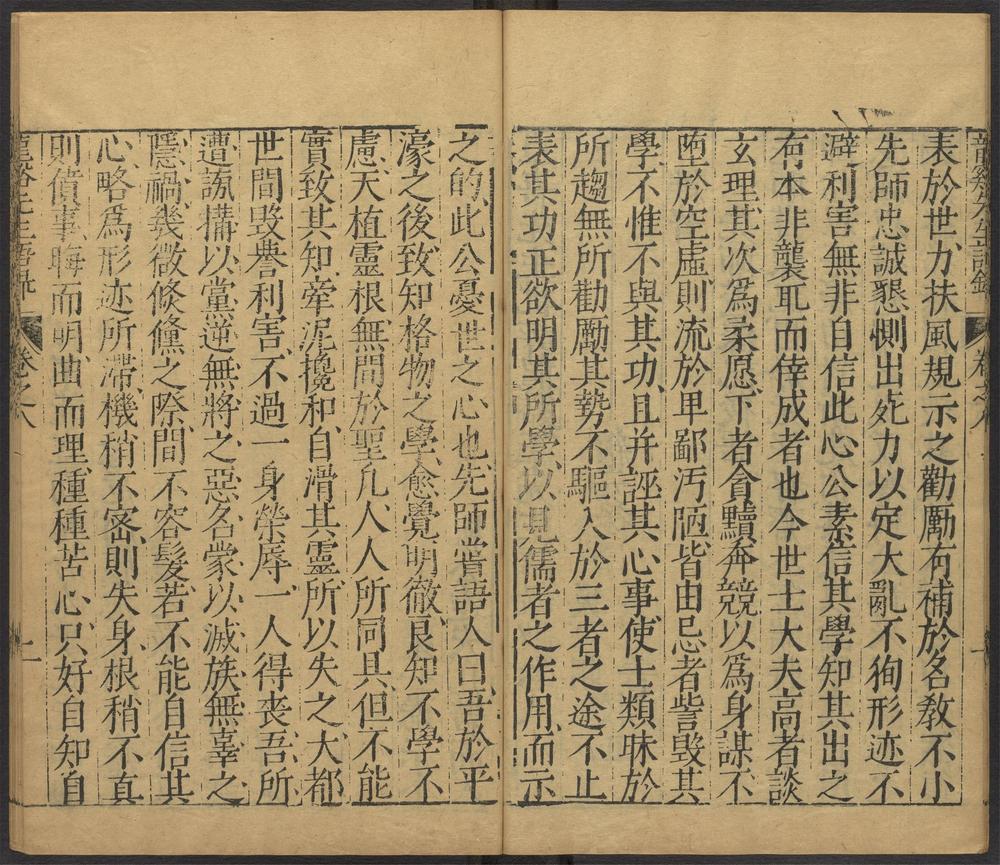 龍谿先生語錄 卷之八
表於世力扶風規示之勸勵有補於名教不小
先師忠誠懇惻出死力以定大亂不徇形迹不
避利害無非自信此心公素信其學知其出之
有本非襲取而倖成者也今世士大夫高者談
玄理其次爲柔愿下者貪黷奔競以爲身謀不
墮於空虛則流於卑鄙汚陋皆由忌者訾毀其
學不惟不與其功且并誣其心事使士類昧於
所趨無所勸勵其勢不驅入於三者之途不止
表其功正欲明其所學以見儒者之作用而示
之的此公憂世之心也先師嘗語人曰吾於平
濠之後致知格物之學愈覺明徹良知不學不
慮天植靈根無間於聖凡人人所同具但不能
實致其知牽泥攙和自滑其靈所以失之大都
世間毀譽利害不過一身榮辱一人得丧吾所
遭謗搆以黨逆無將之惡名蒙以滅族無辜之
隱禍幾微倏儵之際間不容髮若不能自信其
心略爲形迹所滯機稍不密則失身根稍不真
則僨事晦而明曲而理種種苦心只好自知自
龍谿先生語錄 卷之八 二